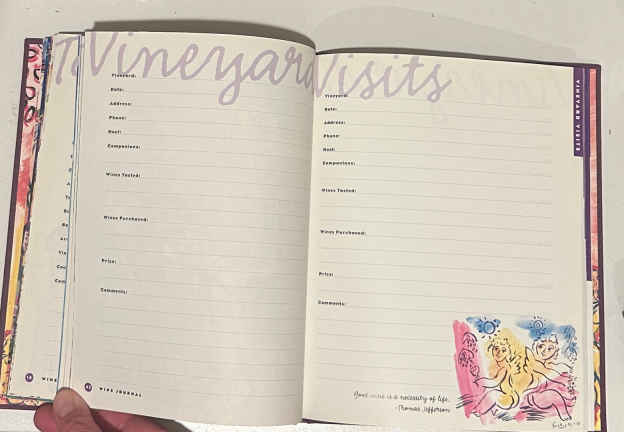 Vineyard Visits
Vineyard:
Date:
Address:
Phone:
Host:
Companions:
Wines Tasted:
Wines Purchased:
Price:
Comments:
WINE JOURNAL
Vineyard:
Date:
Address:
Phone:
Host:
Companions:
Wines Tasted:
Wines Purchased:
Price:
Comments:
Good wine is a necessity of life.
-Thomas Jefferson
VINEYARD VISITS